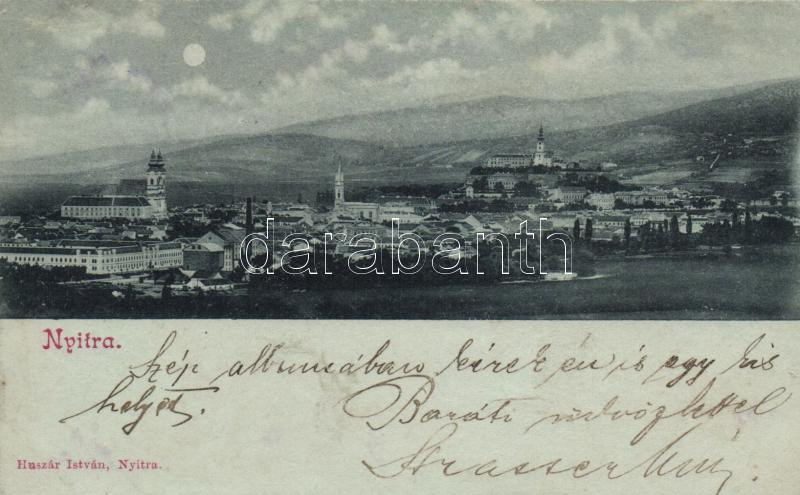 darabanth
Nyitra.
Szép albumcában kérek én is egy kis
helyet.
Baráti üdvözlettel
Strasser
Huszár István, Nyitra.